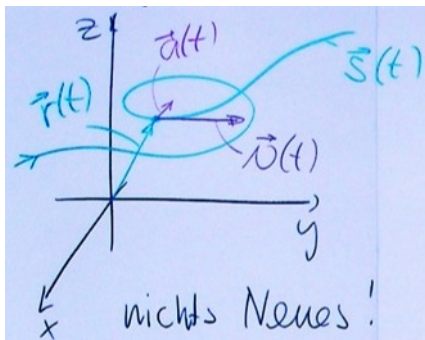 z
a⃗(t)
r⃗(t)
s⃗(t)
v⃗(t)
y
x
nichts Neues!